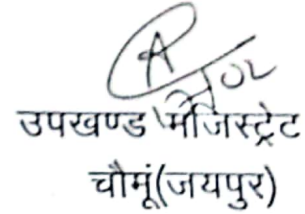 A
उपखण्ड मजिस्ट्रेट
चौमूं(जयपुर)